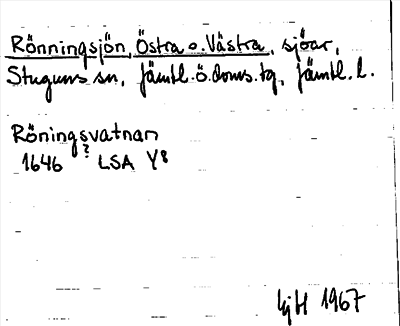 Rönningsjön, Östra o. Västra, sjöar,
Stuguns sn, Jämtl. ö. doms. tg, Jämtl. l.
Röningsvatnan
1646 ? LSA Y8
HjH 1967